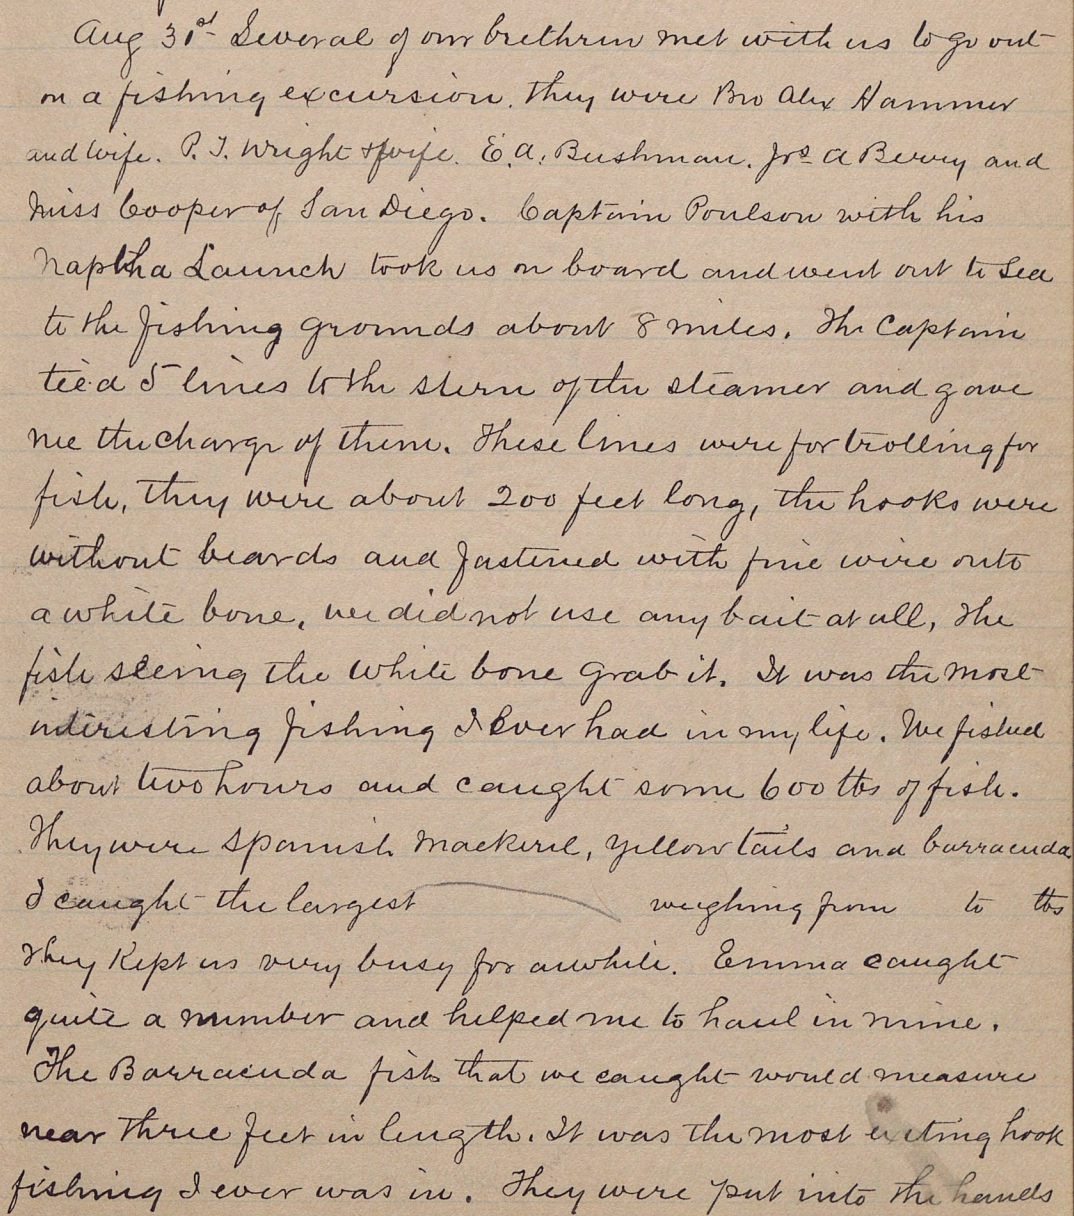 Aug 31st Several of our brethren met with us to go out
on a fishing excursion. They were Bro Alex Hammer
and wife. P. T. Wright & wife. E. A. Bushman. Jos A Berry and
Miss Cooper of San Diego. Captain Poulson with his
Naptha Launch took us on board and went out to Sea
to the fishing grounds about 8 miles. The Captain
tied 5 lines to the stern of the steamer and gave
me the charge of them. These lines were for trolling for
fish, they were about 200 feet long, the hooks were
without beards and fastened with fine wire onto
a white bone, we did not use any bait at all, the
fish seeing the white bone grab it. It was the most
interesting fishing I Ever had in my life. We fished
about two hours and caught some 600 lbs of fish.
They were Spanish Mackerel, yellow tails and barracuda
I caught the largest weighing from to lbs
They Kept us very busy for awhile. Emma caught
quite a number and helped me to haul in mine.
The Barracuda fish that we caught would measure
near three feet in length. It was the most exciting hook
fishing I ever was in. They were put into the hands